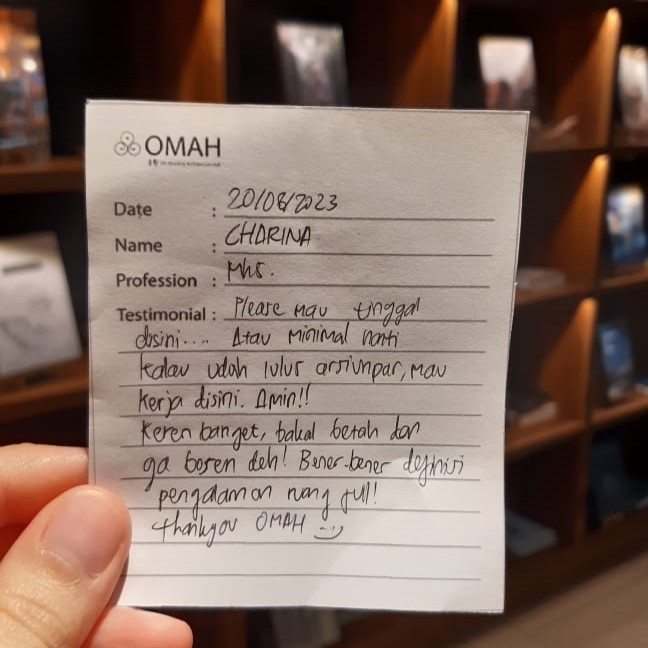 OMAH
Date : 20/08/2023
Name : CHARINA
Profession : Mhs.
Testimonial : Please mau tinggal
disini.... Atau minimal nanti
kalau udah lulus arsiunpar, mau
kerja disini. Amin!!
Keren banget, bakal betah dan
ga bosen deh! Bener-bener definisi
pengalaman ruang full!
thankyou OMAH